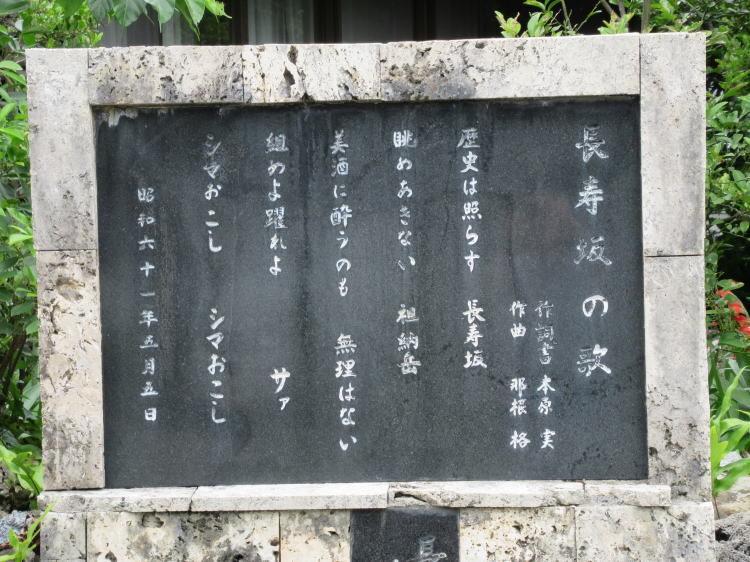 長寿坂の歌
作詞書 本原 実
作曲 那根 格
歴史は照らす 長寿坂
眺めあきない 祖納岳
美酒に酔うのも 無理はない
組めよ躍れよ サァ
シマおこし シマおこし
昭和六十一年五月五日
長